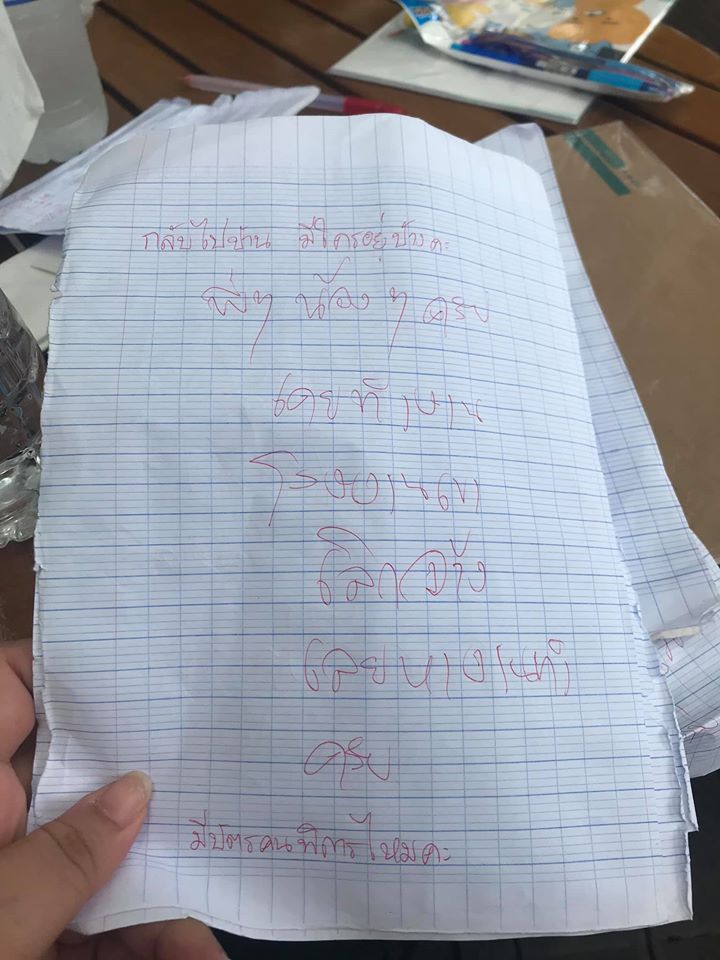 กลับไปบ้าน มีใครอยู่บ้างคะ
พี่ๆ น้อง ๆ ครับ
เคยทำงาน
โรงงานเขา
เลิกจ้าง
เลยหางานทำ
ครับ
มีบัตรคนพิการไหมคะ